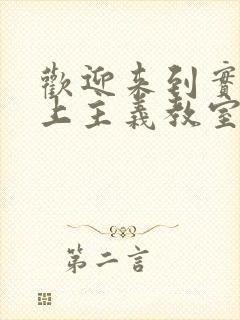 歡迎來到實
上主義教室
第二言